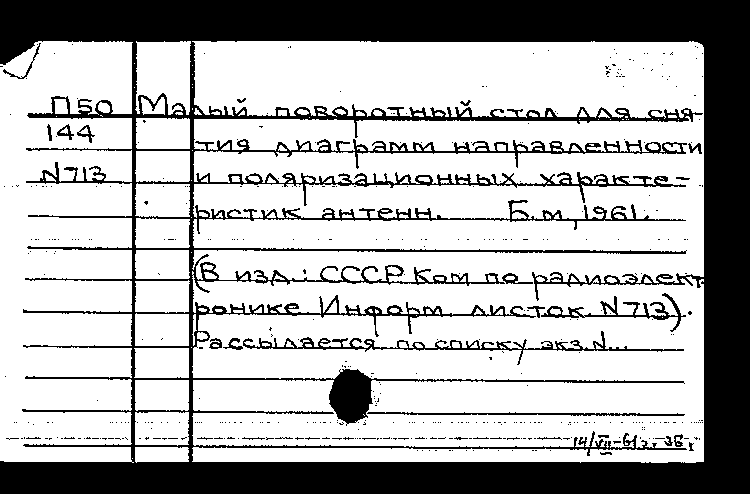 П50 Малый поворотный стол для сня-
144 тия диаграмм направленности
N713 и поляризационных характе-
ристик антенн. Б.м., 1961.
(В изд.: СССР Ком по радиоэлект
ронике Информ. листок. N713).
Рассылается по списку экз.N...
14/VII-61г.